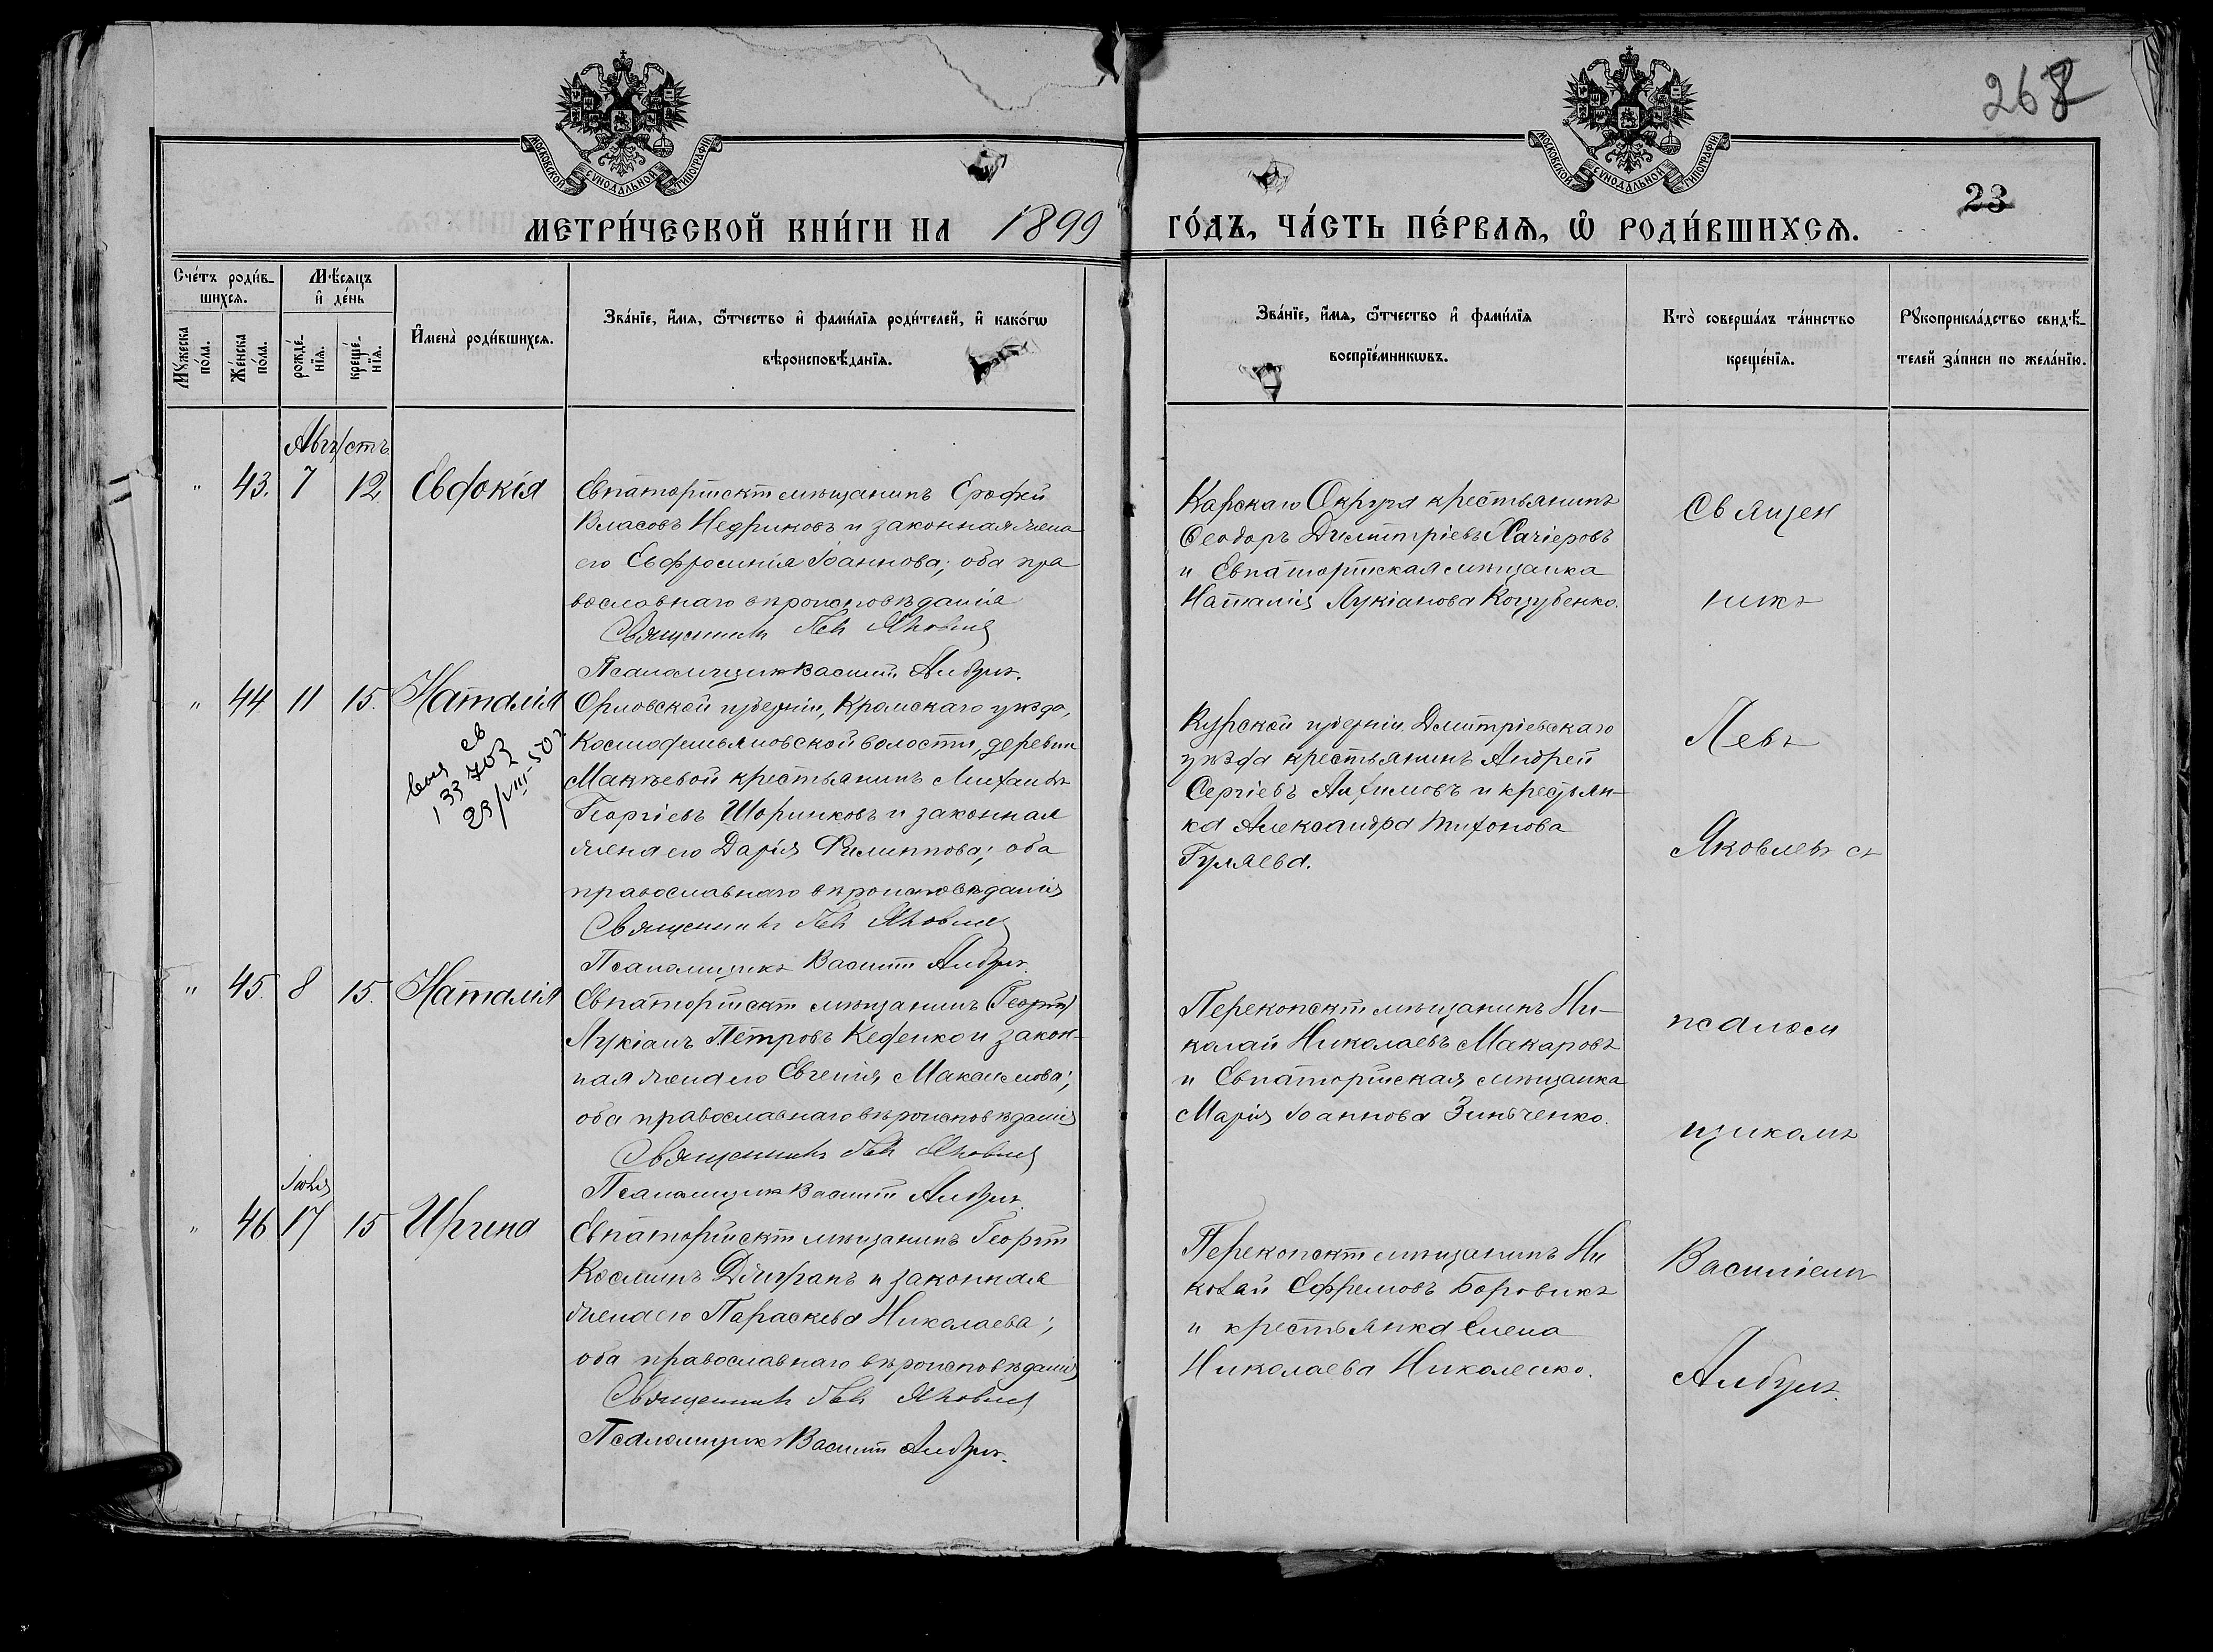 268
МОСКОВСКОЙ СѴНОДАЛЬНОЙ ТИПОГРАФІИ
МОСКОВСКОЙ СѴНОДАЛЬНОЙ ТИПОГРАФІИ
23
МЕТРИ́ЧЕСКОЙ КНИ́ГИ НА 1899 ГО́ДЪ, ЧА́СТЬ ПЕ́РВАѦ, Ѡ҆ РОДИ́ВШИХСѦ.
Сче́тъ роди́в-
шихсѧ.
Мꙋжеска по́ла.
Же́нска по́ла.
Мѣ́сѧцъ
и҆ де́нь
рожде́-
нїѧ.
креще́-
нїѧ.
И҆мена̀ роди́вшихсѧ.
Зва́нїе, и҆́мѧ, ѻ҆́тчество и҆ фами́лїѧ роди́телей, и҆ како́гѡ
вѣроисповѣ́данїѧ.
Зва́нїе, и҆́мѧ, ѻ҆́тчество и҆ фами́лїѧ
воспрїе́мникѡвъ.
Кто̀ соверша́лъ та́инство
креще́нїѧ.
Рꙋкоприкла́дство свидѣ́-
телей за́писи по жела́нїю.
Августъ
" 43. 7 12 Евдокія
Евпаторійскій мѣщанинъ Ерофей
Власовъ Недриковъ и законная жена
его Евфросинія Іоаннова; оба пра
вославнаго вѣроисповѣданія
Священникъ Левъ Яковлев
Псаломщикъ Василій Албулъ.
Карскаго Округа крестьянинъ
Ѳеодоръ Димитріевъ Хачіеровъ
и Евпаторійская мѣщанка
Наталія Лукіанова Коцубенко.
" 44 11 15. Наталія
св
133703
29/VIII-50 г
Орловской губерніи, Кромскаго уѣзда,
Космодемьяновской волости, деревни
Макѣевой крестьянинъ Михаилъ
Георгіевъ Шоринковъ и законная
жена его Дарія Филиппова; оба
православнаго вѣроисповѣданія
Священникъ Левъ Яковлев
Псаломщикъ Василій Албулъ.
Курской губерніи Дмитріевскаго
уѣзда крестьянинъ Андрей
Сергіевъ Анѳимовъ и крестьян-
ка Александра Тихонова
Гуляева.
" 45. 8 15. Наталія
Евпаторійскій мѣщанинъ (Георгій)
Лукіанъ Петровъ Кефенко и закон-
ная жена его Евгенія Максимова;
оба православнаго вѣроисповѣданія
Священникъ Левъ Яковлев
Псаломщикъ Василій Албулъ.
Перекопскій мѣщанинъ Ни-
колай Николаевъ Макаровъ
и Евпаторійская мѣщанка
Марія Іоаннова Зинченко.
Іюля
" 46 17 15 Иргина
Евпаторійскій мѣщанинъ Георгій
Косминъ Дчигранъ и законная
жена его Параскева Николаева;
оба православнаго вѣроисповѣданія
Священникъ Левъ Яковлев
Псаломщикъ Василій Албулъ.
Перекопскій мѣщанинъ Ни
колай Ефремовъ Боровикъ
и крестьянка Елена
Николаева Николенко.
Священ
никъ
Левъ
Яковлевъ съ
псалом
щикомъ
Василіемъ
Албулъ.